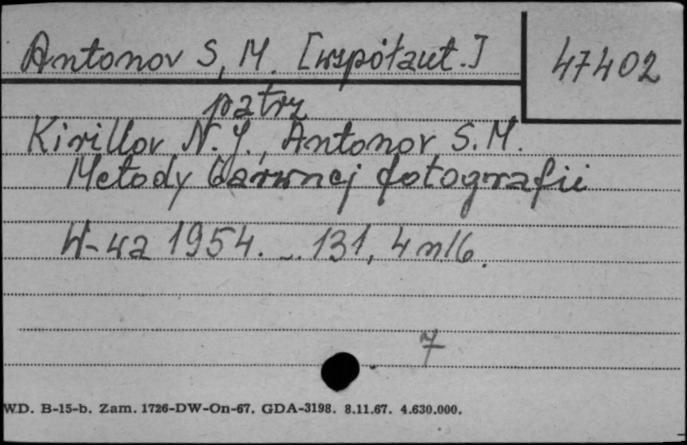 Antonov S, M. [współaut.]
47402
patrz
Kirillov N. J., Antonov S. M.
Metody barwnej fotografii
W-wa 1954. 131, 4 nlb.
7
WD. B-15-b. Zam. 1726-DW-On-67. GDA-3198. 8.11.67. 4.630.000.